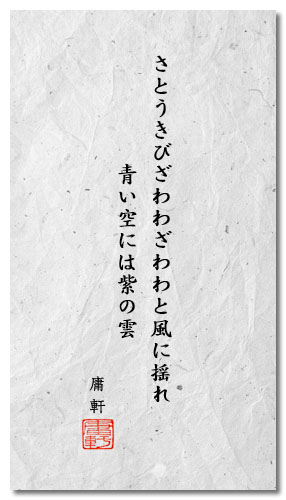 さとうきびざわわざわわと風に揺れ
青い空には紫の雲
庸軒